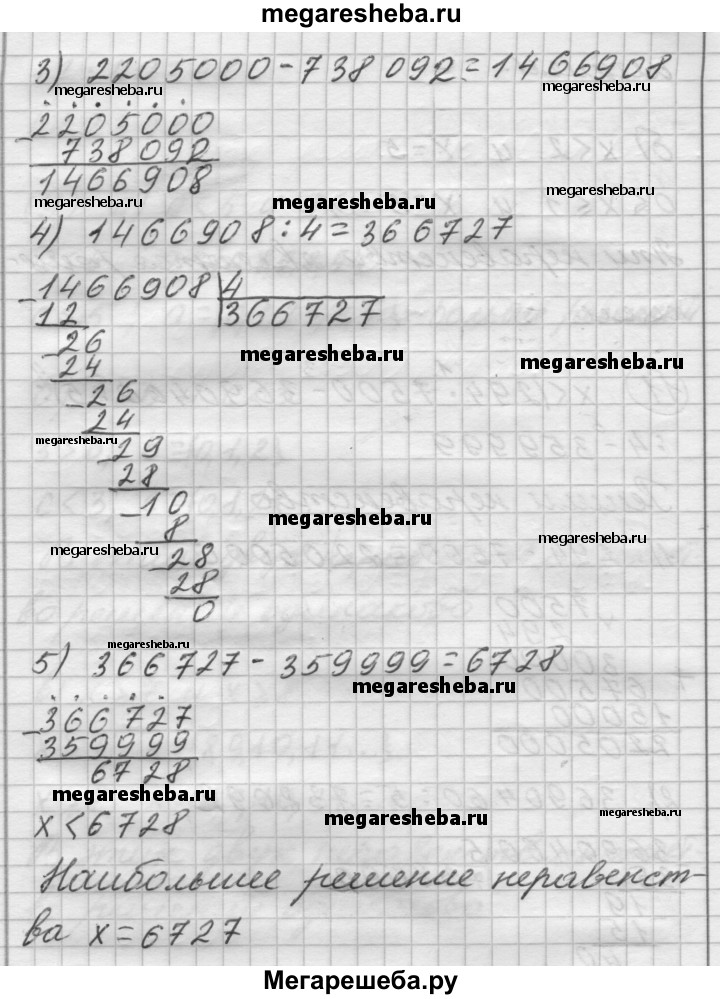 megaresheba.ru
3) 2205000-738092=1466908
megaresheba.ru megaresheba.ru
-2205000
738092
1466908
megaresheba.ru megaresheba.ru megaresheba.ru
4) 1466908:4=366727
-1466908 4
12 366727
-26
megaresheba.ru megaresheba.ru
24
-26
24
megaresheba.ru
-29
28
-10
megaresheba.ru
8
megaresheba.ru megaresheba.ru
-28
28
0
megaresheba.ru
5) 366727-359999=6728
megaresheba.ru
-366727
359999
6728
megaresheba.ru
x<6728
megaresheba.ru megaresheba.ru
Наибольшее решение неравенст-
ва x=6727
Мегарешеба.ру